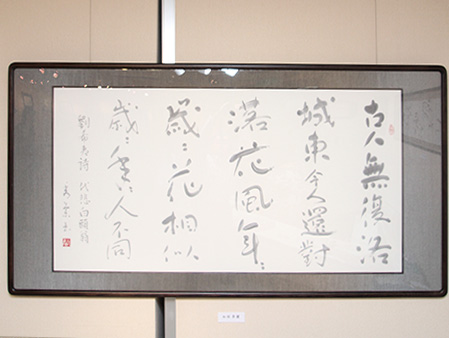 古人無復洛
城東今人還對
落花風年〻
歳〻花相似
歳〻年〻人不同
劉希夷詩 代悲白頭翁